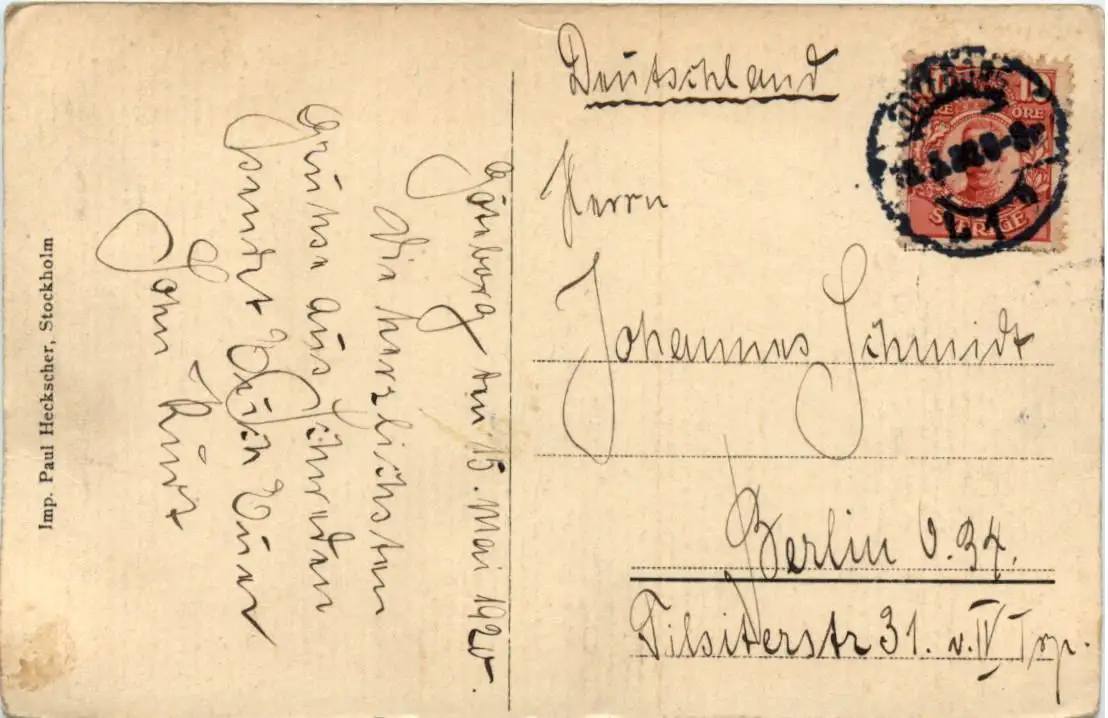 Deutschland
Herrn
Johannes Schmidt
Berlin O.34.
Tilsiterstr 31. v. IV Trp.
Göteborg den 15. Mai 1920.
Die herzlichsten
Grüße aus Schweden
sendet Euch Euer
Sohn Kurt
Imp. Paul Heckscher, Stockholm
10
ÖRE
SVERIGE